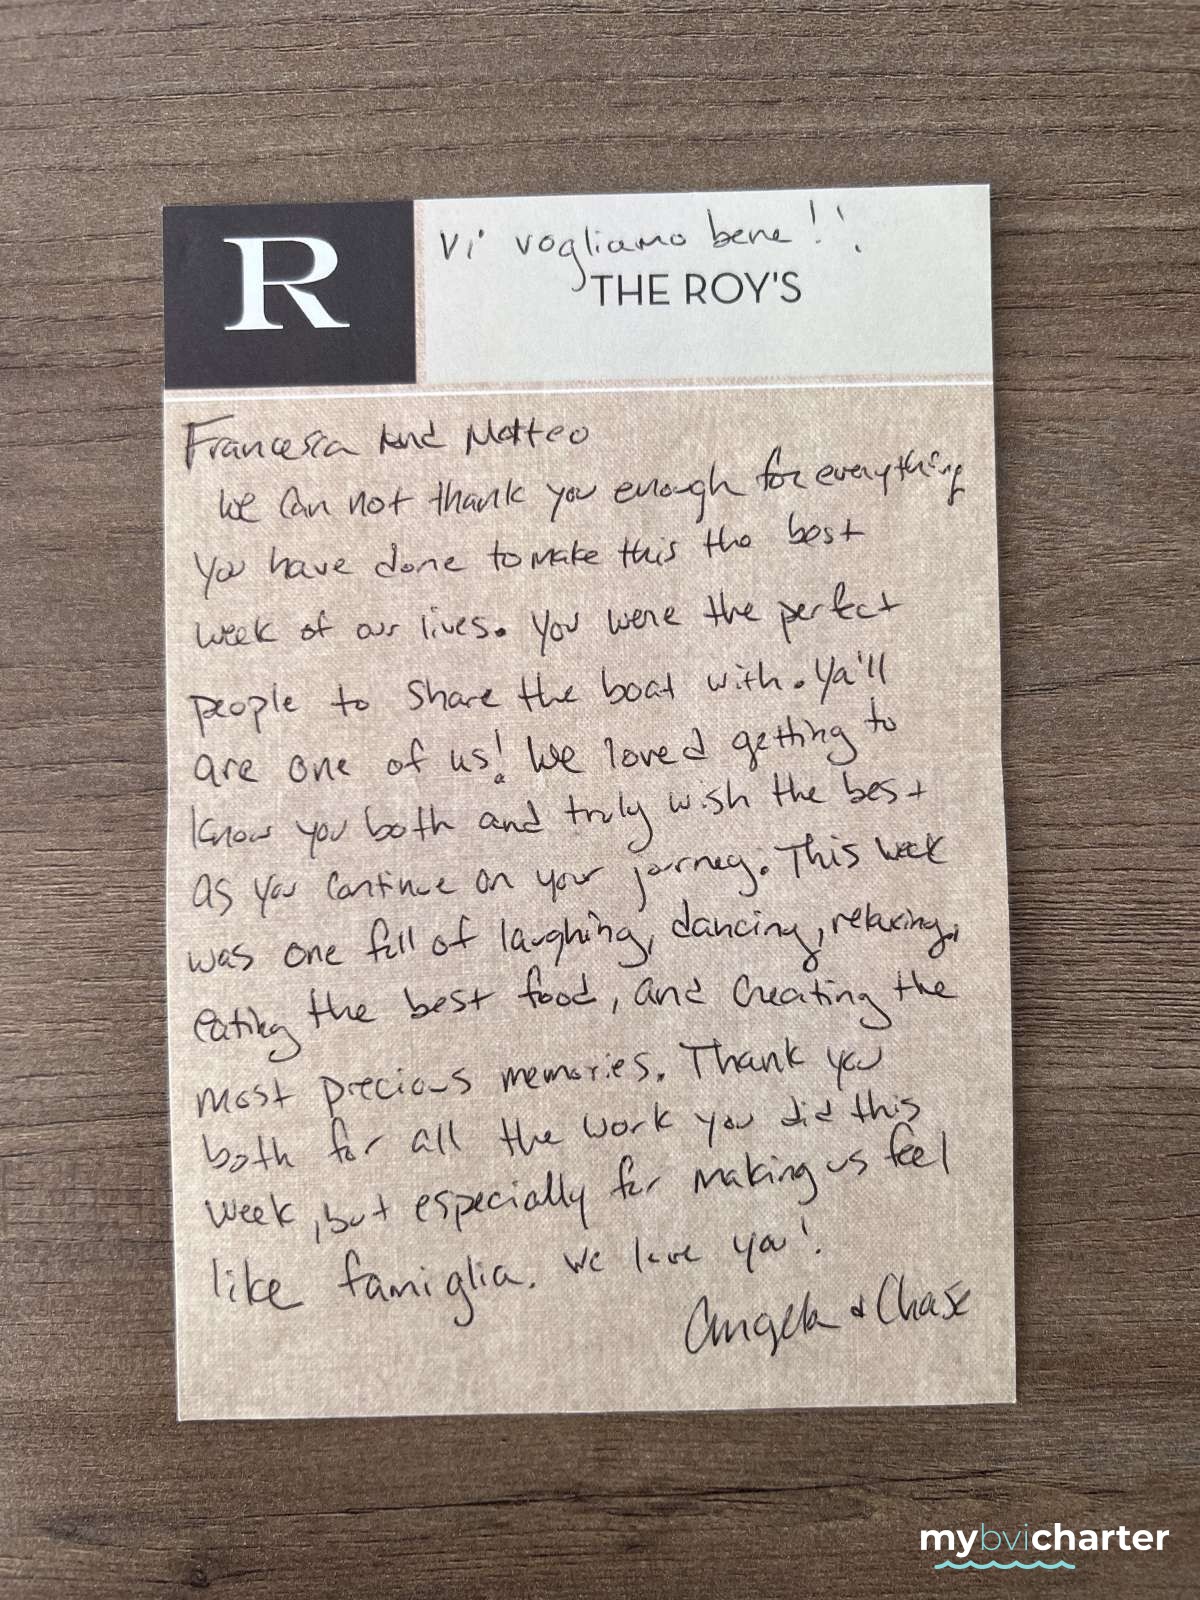 R
Vi vogliamo bene!!
THE ROY'S
Francesca And Matteo
We can not thank you enough for everything
you have done to make this the best
week of our lives. You were the perfect
people to share the boat with. Ya'll
are one of us! We loved getting to
know you both and truly wish the best
as you continue on your journey. This week
was one full of laughing, dancing, relaxing,
eating the best food, and creating the
most precious memories. Thank you
both for all the work you did this
week, but especially for making us feel
like famiglia. We love you!
Angela & Chase
mybvicharter